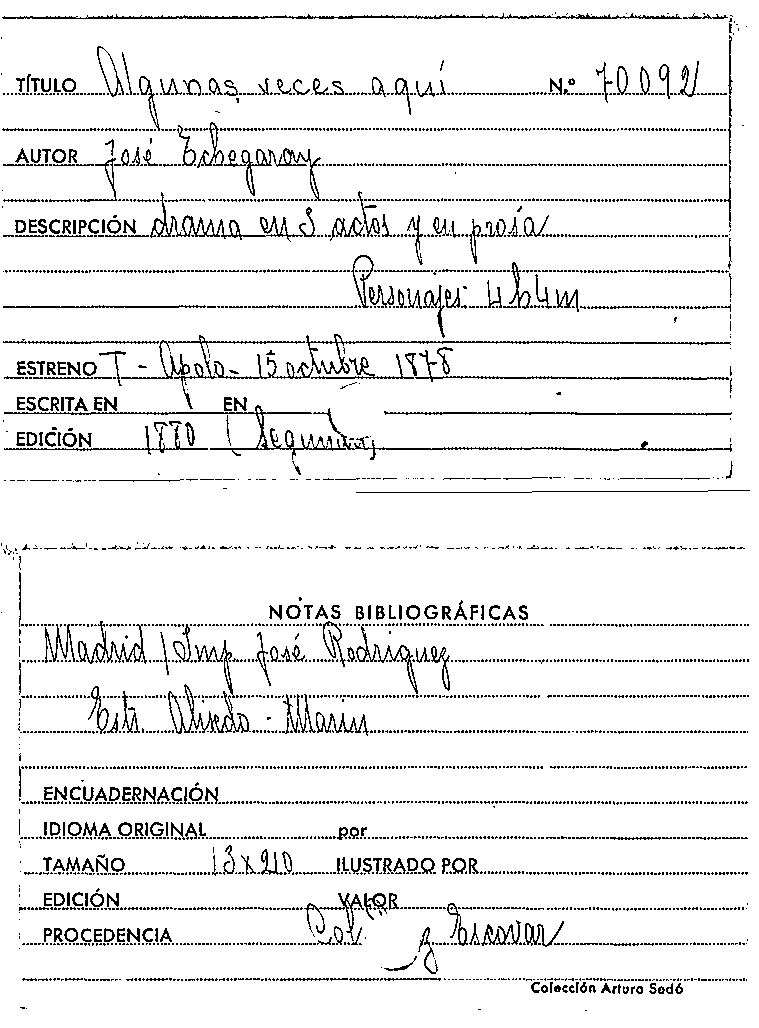 TÍTULO Algunas veces aquí N.º 70092
AUTOR José Echegaray
DESCRIPCIÓN drama en 3 actos y en prosa
Personajes 4h4m
ESTRENO T - Apolo - 15 octubre 1878
ESCRITA EN EN
EDICIÓN 1880 (Segunda)
NOTAS BIBLIOGRÁFICAS
Madrid / Imp José Rodriguez
Estr. - Marin
ENCUADERNACIÓN
IDIOMA ORIGINAL por
TAMAÑO 13 x 210 ILUSTRADO POR
EDICIÓN VALOR
PROCEDENCIA Col y Escovar
Colección Arturo Sedó